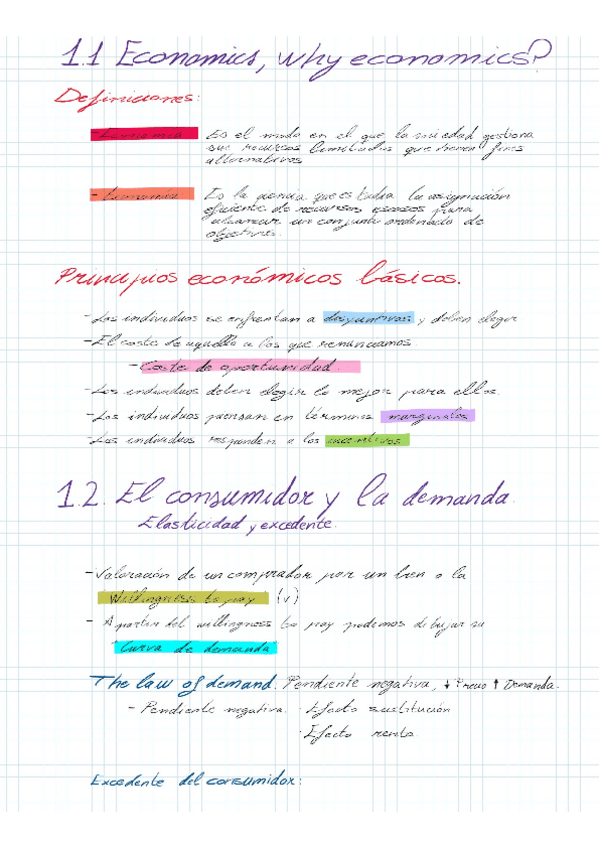 1.1 Economics, why economics?
Definiciones:
- Economía Es el modo en el que la sociedad gestiona
sus recursos limitados que tienen fines
alternativos
- Economía Es la ciencia que estudia la asignación
eficiente de recursos escasos para
alcanzar un conjunto ordenado de
objetivos.
Principios económicos básicos.
- Los individuos se enfrentan a disyuntivas y deben elegir
- El coste de aquello a los que renunciamos
- Coste de oportunidad.
- Los individuos deben elegir lo mejor para ellos.
- Los individuos piensan en términos marginales
- Los individuos responden a los incentivos
1.2. El consumidor y la demanda.
Elasticidad y excedente.
- Valoración de un comprador por un bien o la
Willingness to pay (v)
- A partir del willingness to pay podemos dibujar su
Curva de demanda
The law of demand. Pendiente negativa, ↓ Precio ↑ Demanda.
- Pendiente negativa. · Efecto sustitución
· Efecto renta.
Excedente del consumidor: